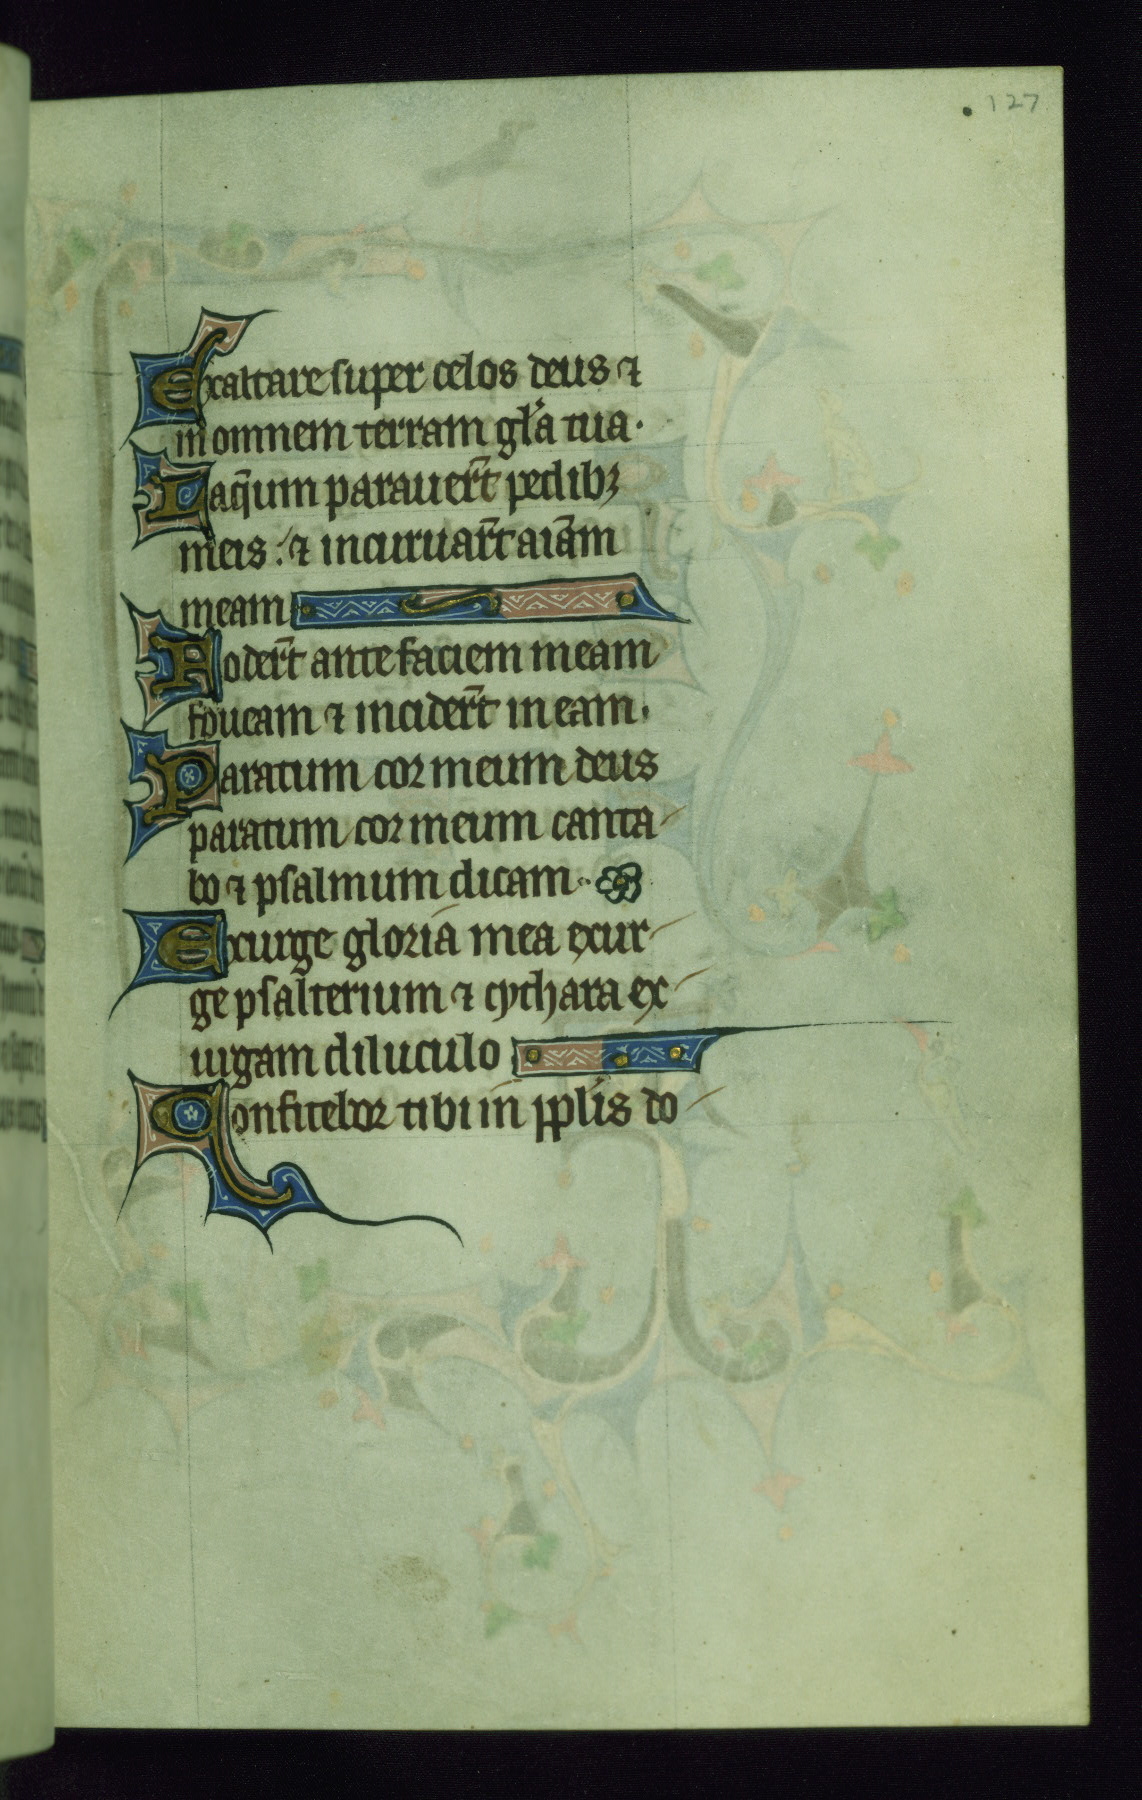 127
Exaltare super celos deus ⁊
in omnem terram gl'a tua·
Laq̄um parauer̄t pedibꝫ
meis : ⁊ incuruar̄t aīam
meam
Foder̄t ante faciem meam
foueam ⁊ incider̄t in eam.
Paratum cor meum deus
paratum cor meum canta-
bo ⁊ psalmum dicam·
Exurge gloria mea exur-
ge psalterium ⁊ cythara ex-
urgam diluculo
Confitebor tibi in pplis do-